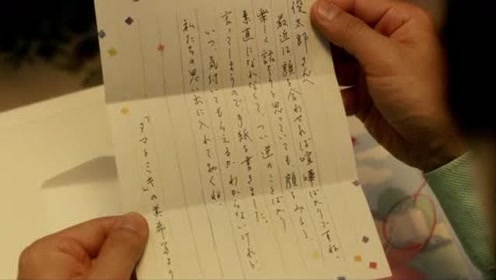 俊太郎さんへ
最近は顔を合わせれば喧嘩ばかりですね。
楽しく話そうと思っていても顔をみると、
素直になれなくて、つい逆のことばかり
言ってしまうので手紙を書きました。
いつ気付いてもらえるかわからないけれど
私たちの思い出に入れておくね。